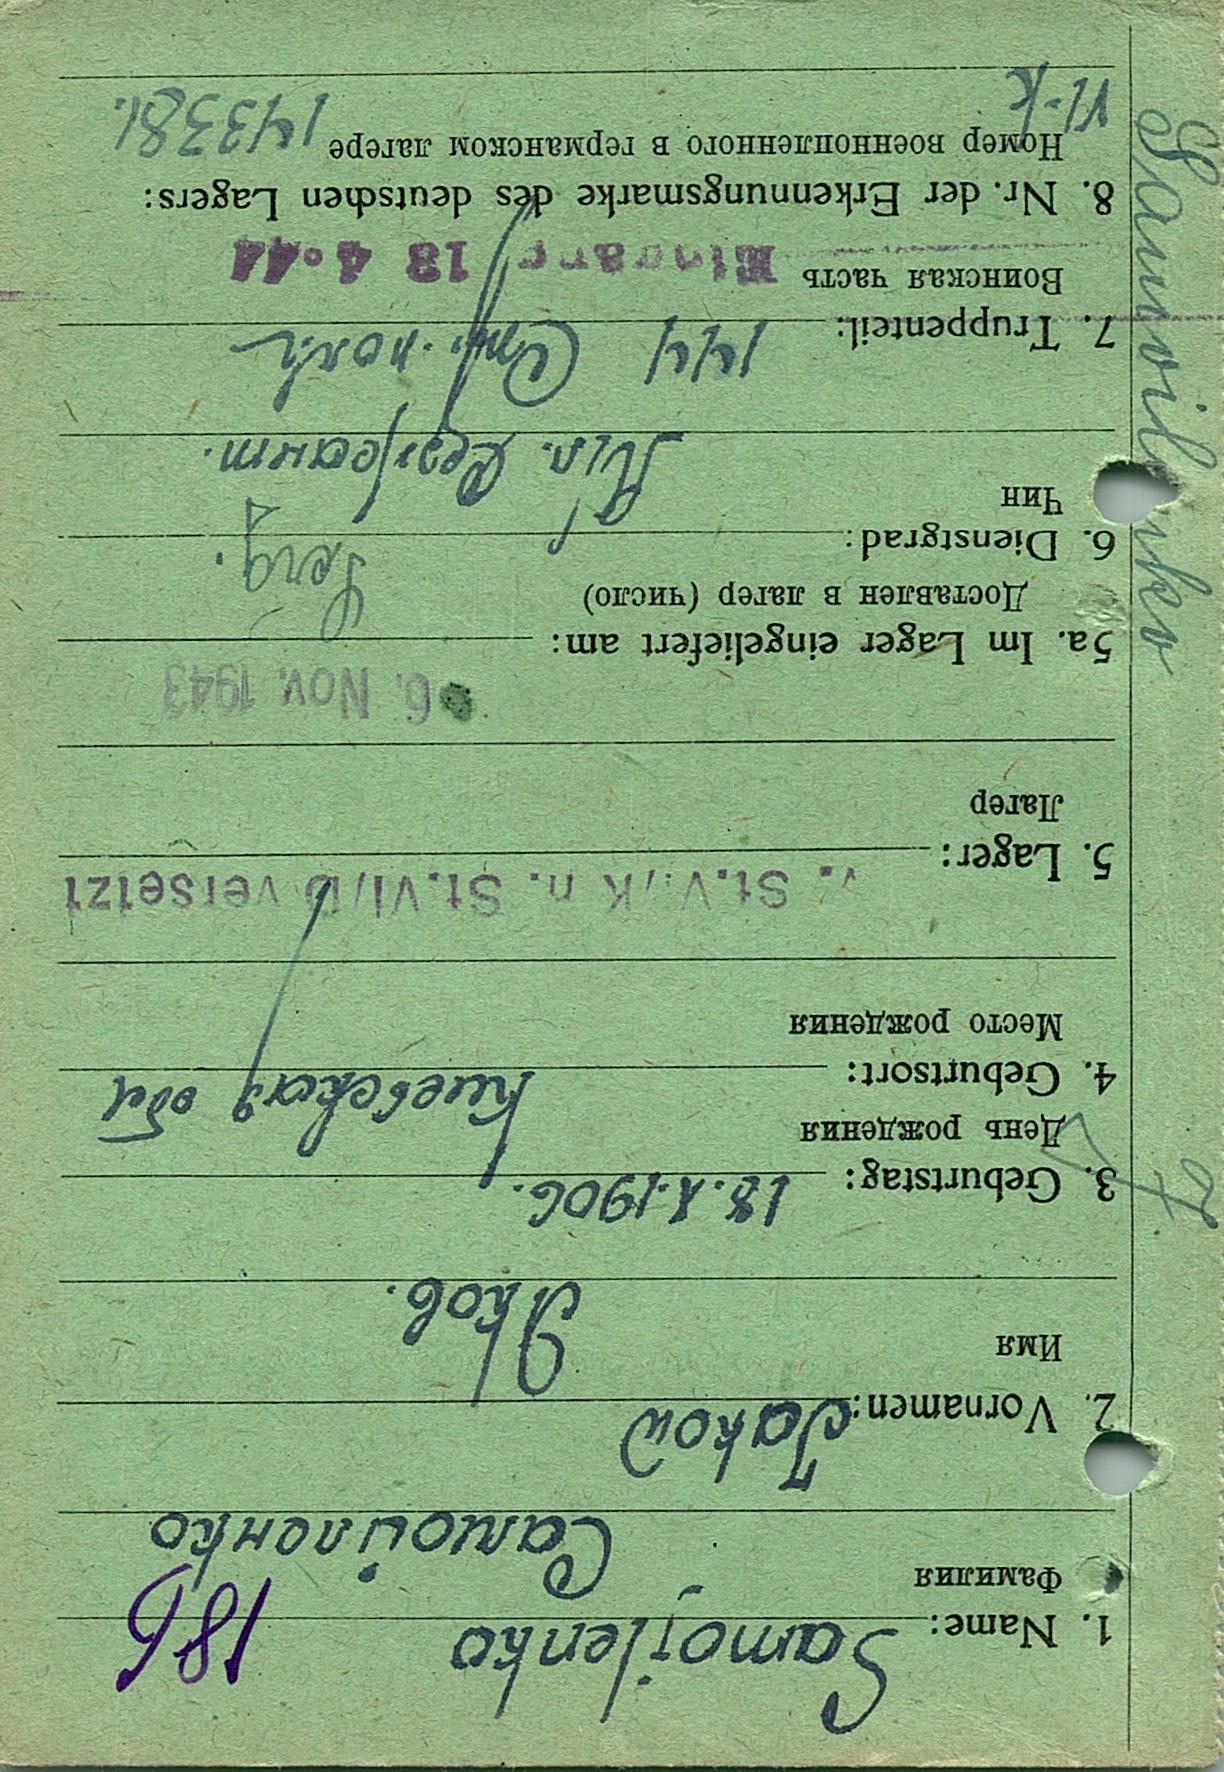 186
1. Name: Samojlenko
Фамилия
Самойленко
2. Vornamen: Jakow
Имя
Яков.
3. Geburtstag: 18.X.1906.
День рождения
4. Geburtsort: Киевская обл
Место рождения
St.V./K n. St.VI/D versetzt
5. Lager:
Лагер
6. Nov. 1943
5a. Im Lager eingeliefert am:
Доставлен в лагер (число)
Serg.
6. Dienstgrad: Мл. Сержант.
Чин
7. Truppenteil: 144 Стр. полк
Воинская часть Eingang 13 4.44
8. Nr. der Erkennungsmarke des deutschen Lagers:
Номер военнопленного в германском лагере 143381.
VI-K
Samoilenko